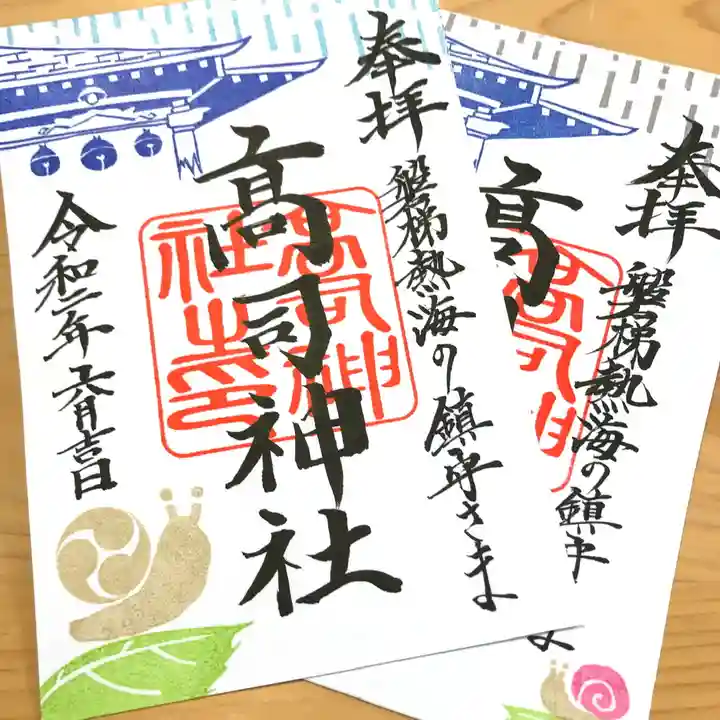 奉拝
磐梯熱海の鎮守さま
高司神社
高司神社之印
令和二年六月吉日
奉拝
磐梯熱海の鎮守
ま
高